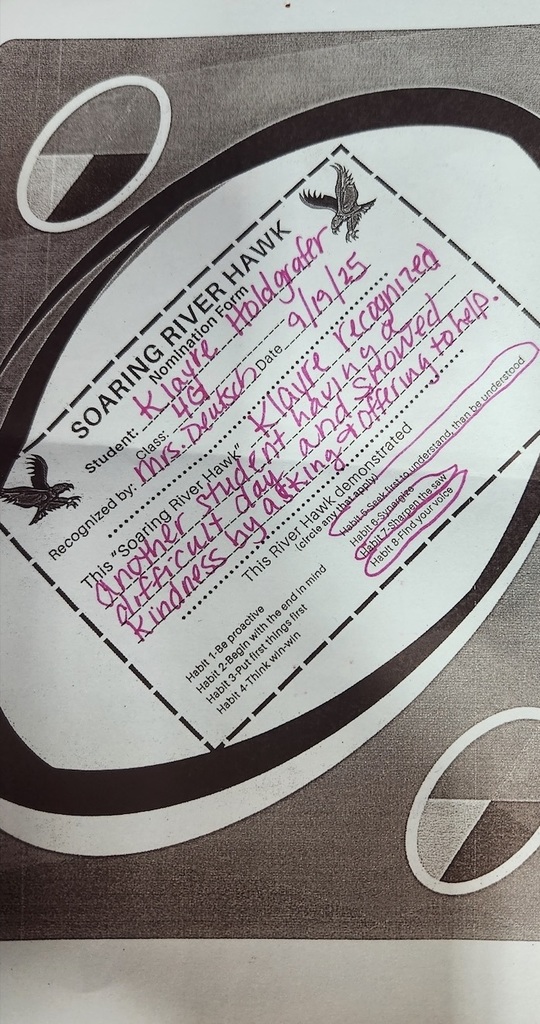 SOARING RIVER HAWK
Nomination Form
Student: Klayre Holdgrafer
Class: 4G Date 9/19/25
Recognized by: Mrs. Deutsch
This "Soaring River Hawk" Klayre recognized
another student having a
difficult day and showed
kindness by asking & offering to help.
This River Hawk demonstrated
(circle any that apply)
Habit 1-Be proactive
Habit 2-Begin with the end in mind
Habit 3-Put first things first
Habit 4-Think win-win
Habit 5-Seek first to understand, than be understood
Habit 6-Synergize
Habit 7-Sharpen the saw
Habit 8-Find your voice